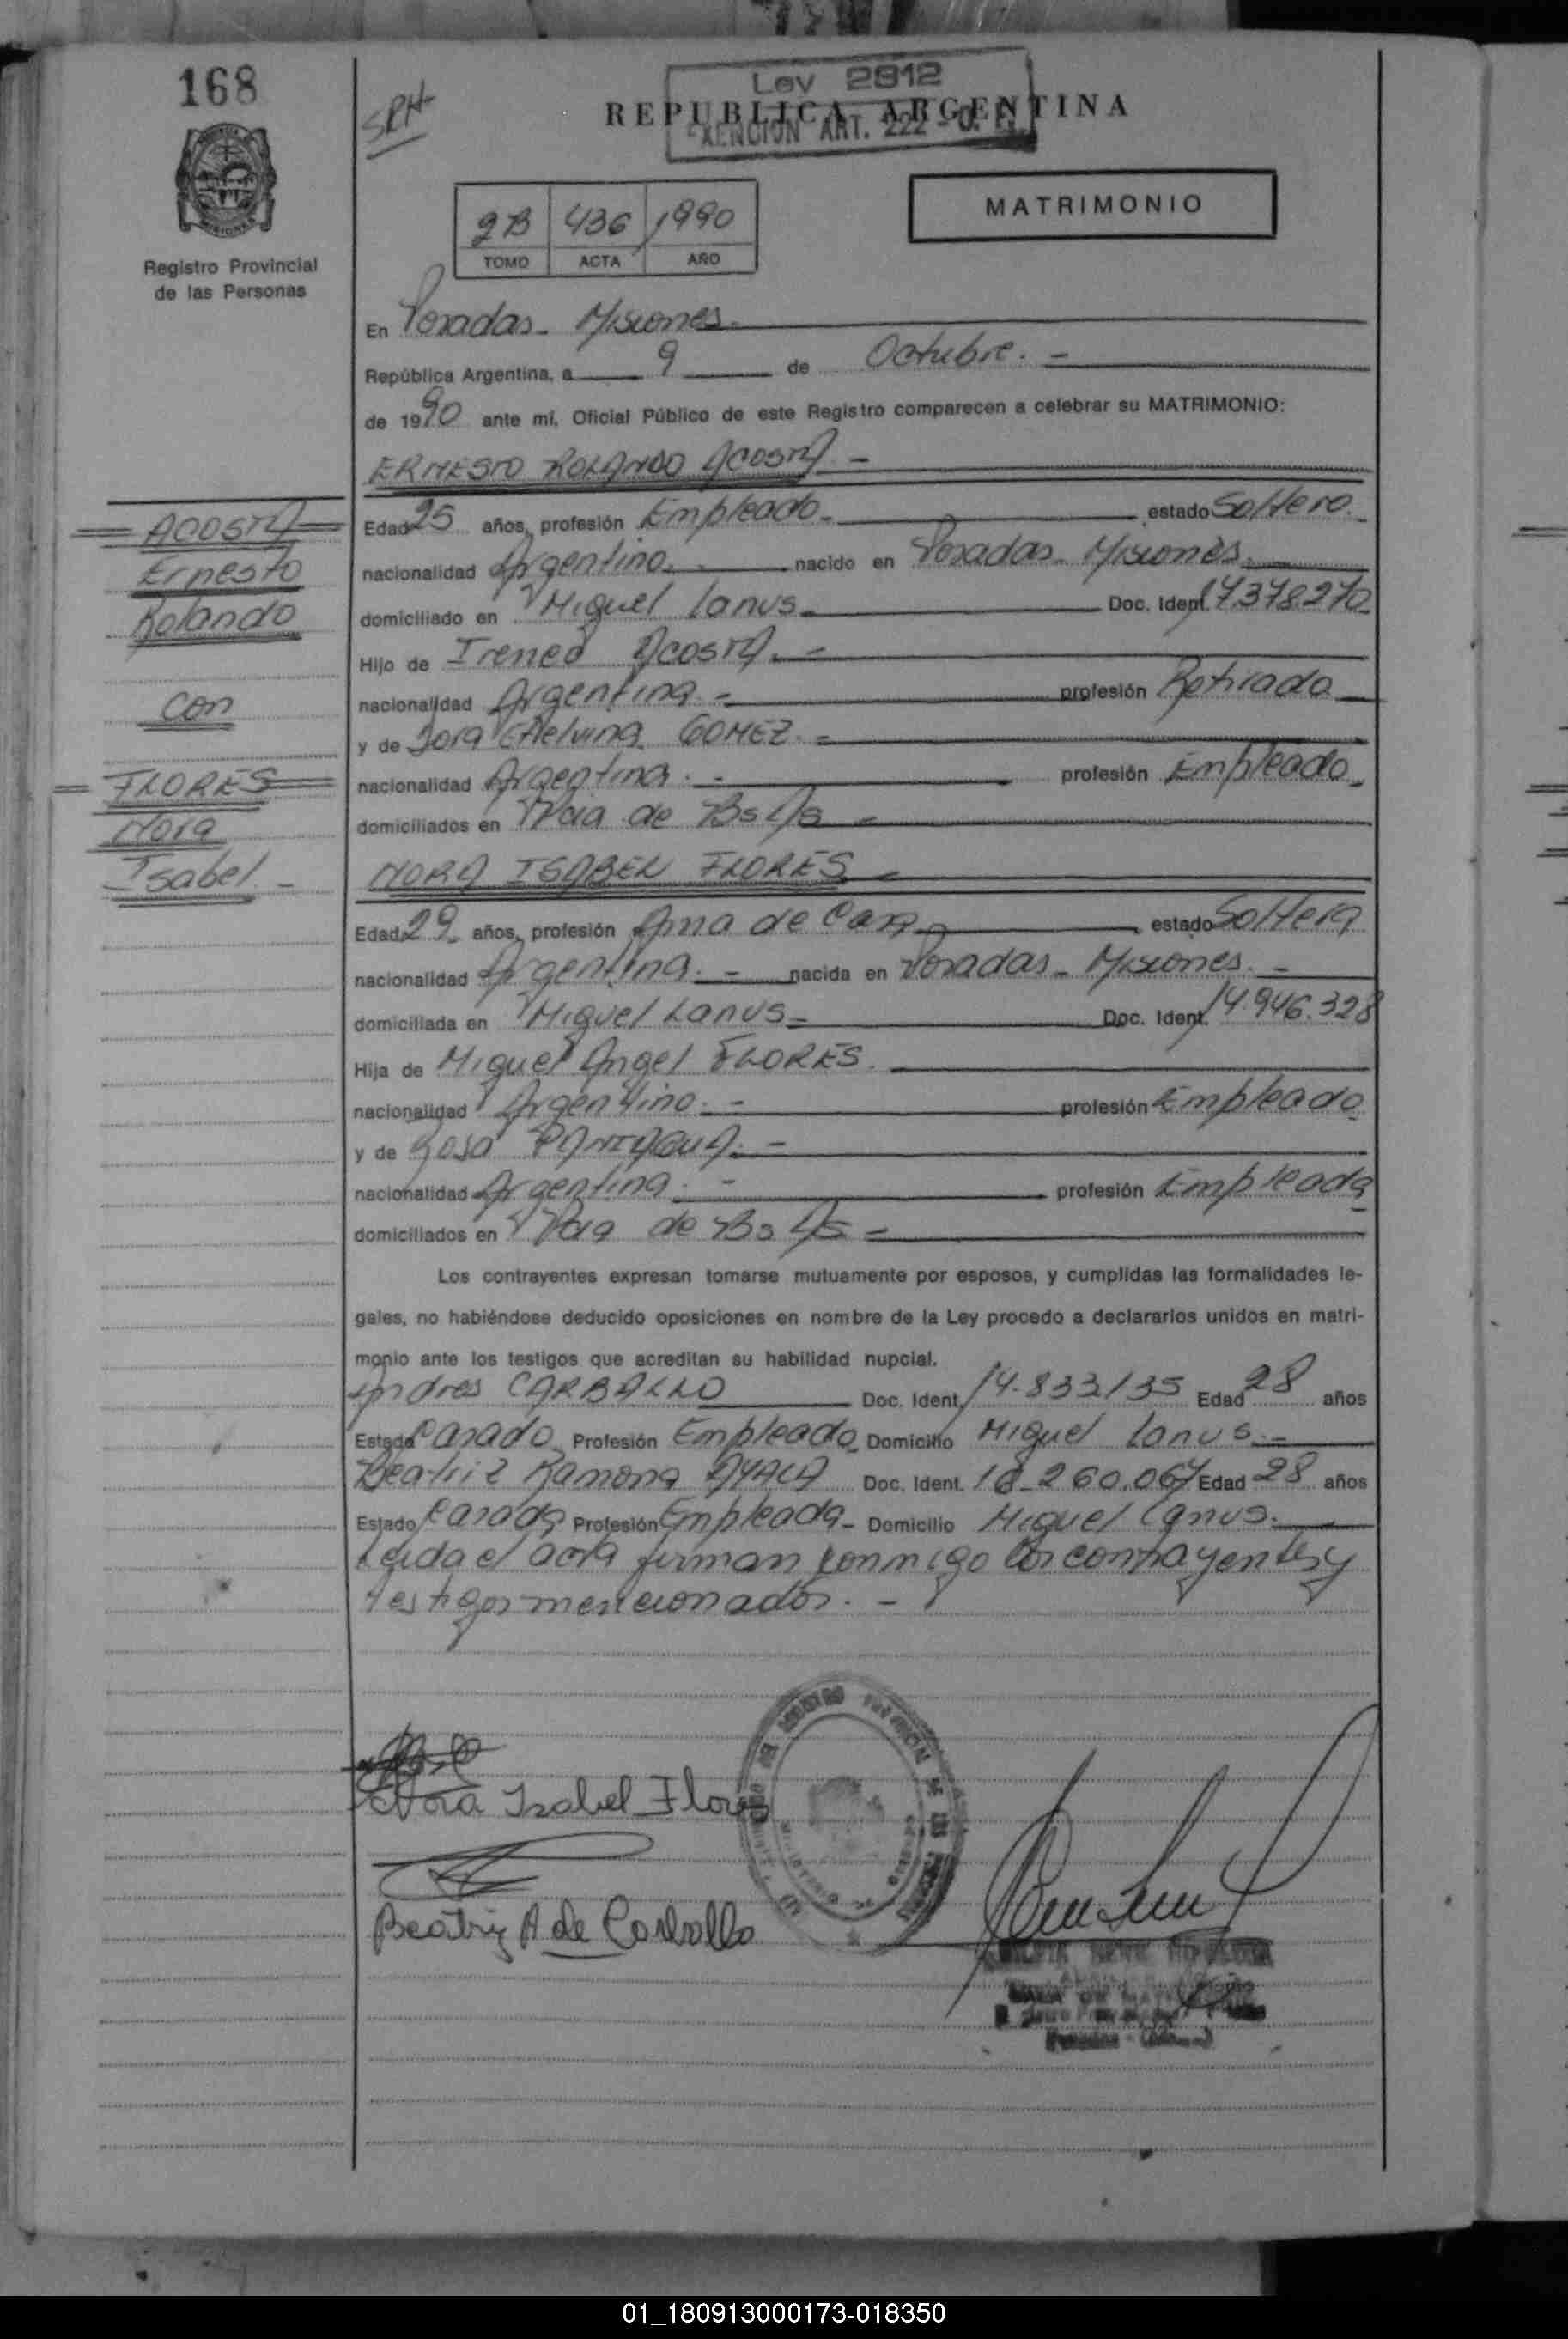 168
SRH
Ley 2812
REPUBLICA ARGENTINA
EXENCION ART. 222 - C. F.
MATRIMONIO
2B 436 1990
TOMO ACTA AÑO
Registro Provincial
de las Personas
En Posadas - Misiones.
República Argentina, a 9 de Octubre. -
de 1990 ante mí, Oficial Público de este Registro comparecen a celebrar su MATRIMONIO:
ERNESTO ROLANDO ACOSTA -
ACOSTA
Ernesto
Rolando
con
FLORES
Nora
Isabel. -
Edad 25 años, profesión Empleado - estado Soltero.
nacionalidad Argentino. nacido en Posadas - Misiones.
domiciliado en Miguel Lanus - Doc. Ident. 17378270
Hijo de Ireneo ACOSTA. -
nacionalidad Argentina - profesión Retirado
y de Etelvina GOMEZ. -
nacionalidad Argentina. - profesión Empleado -
domiciliados en Pcia de Bs As -
NORA ISABEL FLORES -
Edad 29 años, profesión Ama de Casa estado Soltera
nacionalidad Argentina. - nacida en Posadas - Misiones. -
domiciliada en Miguel Lanus - Doc. Ident. 14.946.328
Hija de Miguel Angel FLORES.
nacionalidad Argentino. - profesión Empleado
y de Rosa PANIAGUA. -
nacionalidad Argentina. - profesión Empleada
domiciliados en Pcia de Bs As -
Los contrayentes expresan tomarse mutuamente por esposos, y cumplidas las formalidades le-
gales, no habiéndose deducido oposiciones en nombre de la Ley procedo a declararlos unidos en matri-
monio ante los testigos que acreditan su habilidad nupcial.
Andres CARBALLO Doc. Ident. 14.833135 Edad 28 años
Estado Casado Profesión Empleado Domicilio Miguel Lanus. -
Beatriz Ramona AYALA Doc. Ident. 16.260.067 Edad 28 años
Estado Casada Profesión Empleada - Domicilio Miguel Lanus.
Leida el acta firman conmigo los contrayentes y
testigos mencionados. -
Nora Isabel Flores
Beatriz A de Carballo
01_180913000173-018350